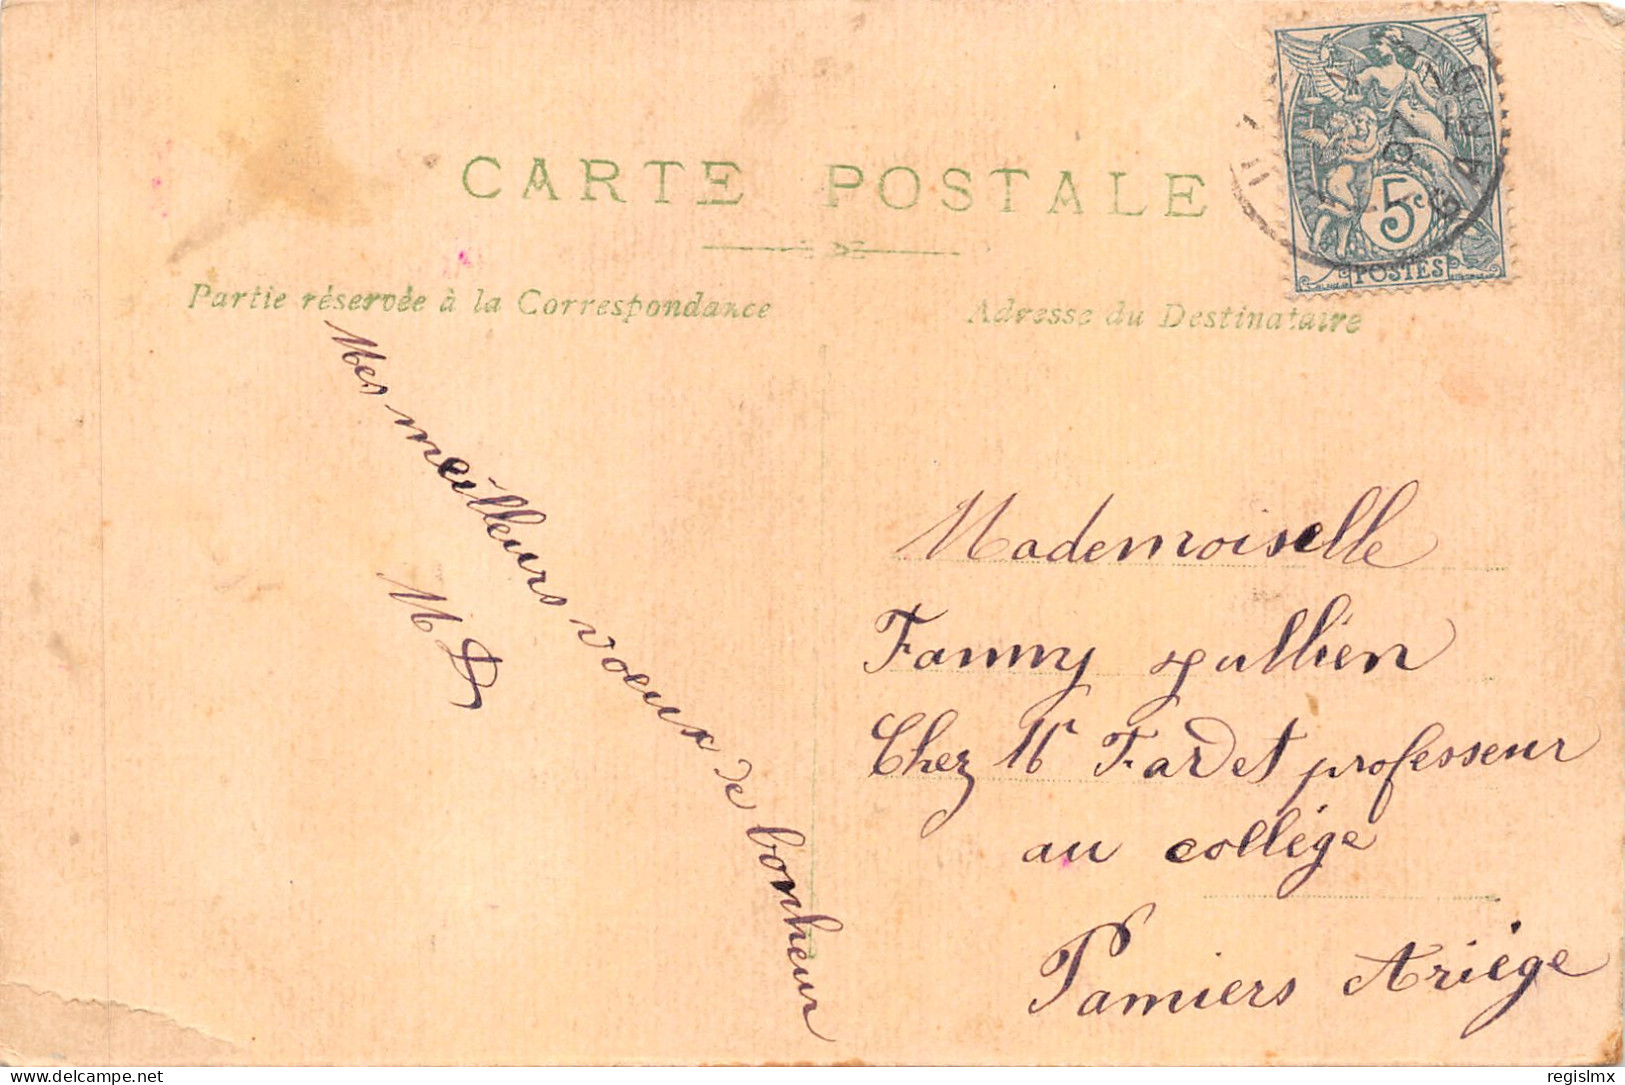 CARTE POSTALE
Partie réservée à la Correspondance
Adresse du Destinataire
5c
POSTES
07
Mes meilleurs voeux de bonheur
M D
Mademoiselle
Fanny
Chez Mr Fardet professeur
au collège
Pamiers Ariège
delcampe.net
regislmx